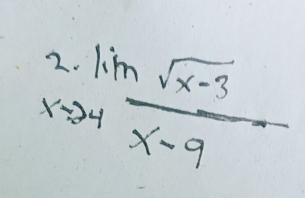 2. lim √x-3
x→4 x-9